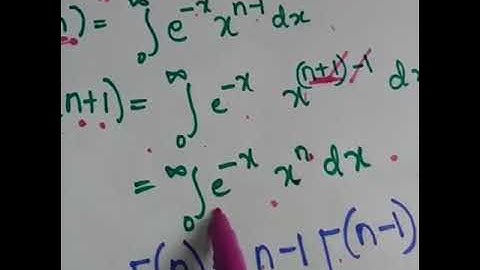 n) = ∫₀^∞ e^{-x} x^{n-1} dx
(n+1) = ∫₀^∞ e^{-x} x^{(n+1)-1} dx
= ∫₀^∞ e^{-x} x^n dx
Γ(n) n-1 Γ(n-1)